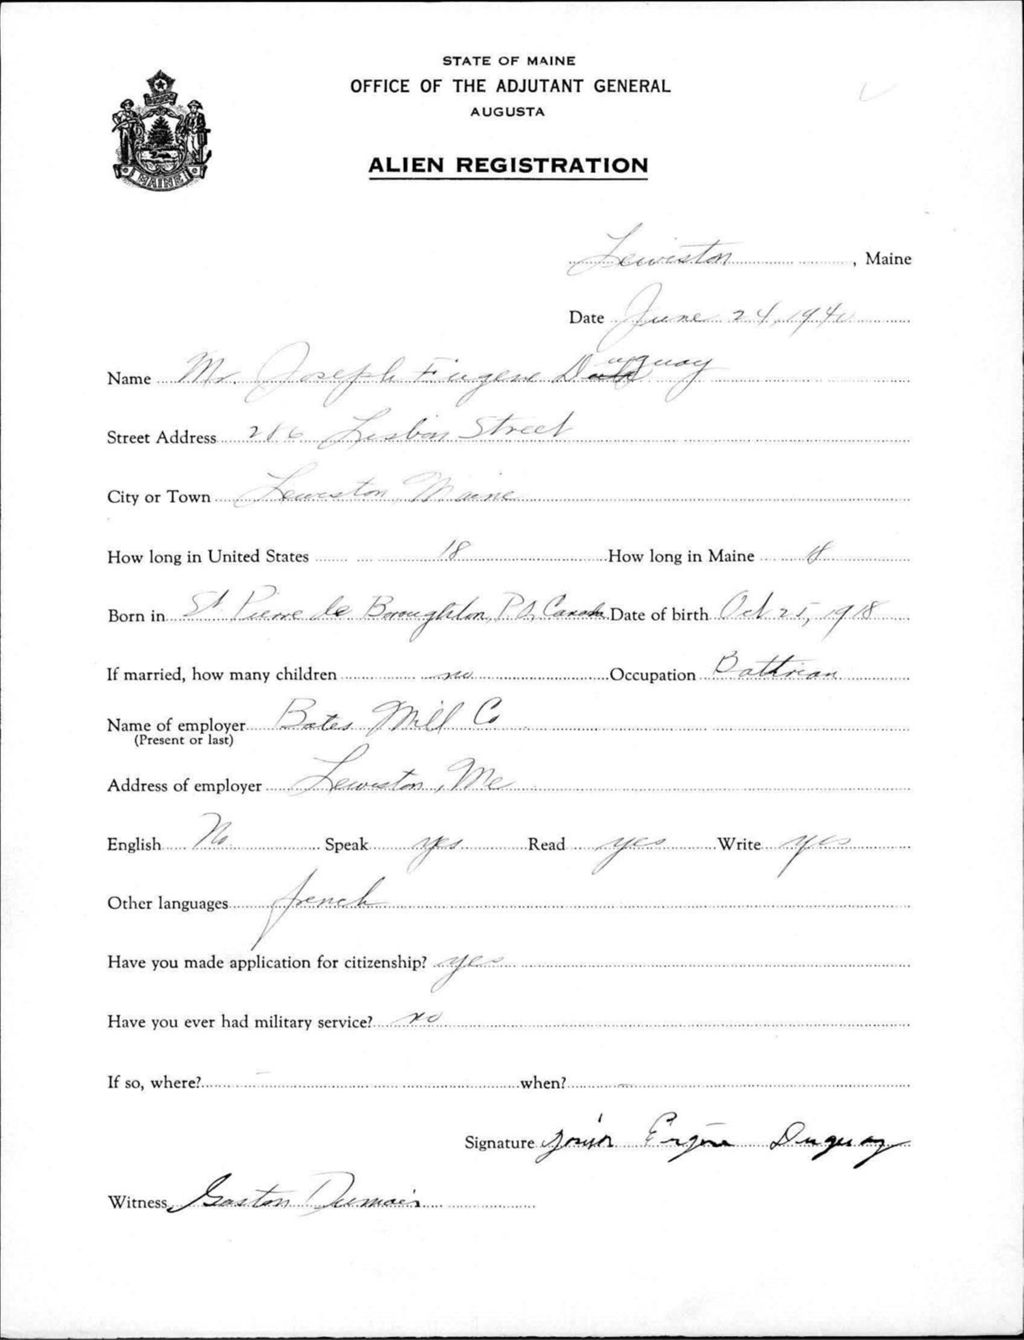 STATE OF MAINE
OFFICE OF THE ADJUTANT GENERAL
AUGUSTA
ALIEN REGISTRATION
MAINE
Lewiston, Maine
Date June 24, 1940
Name Mr. Joseph Eugene Duguay
Street Address 286 Lisbon Street
City or Town Lewiston, Maine
How long in United States 18 How long in Maine 18
Born in St Pierre de Broughton, P.Q, Canada Date of birth Oct 25, 1918
If married, how many children no Occupation Battrian
Name of employer Bates Mill Co
(Present or last)
Address of employer Lewiston, Me
English No Speak yes Read yes Write yes
Other languages french
Have you made application for citizenship? yes
Have you ever had military service? no
If so, where? - when? -
Signature Eugene Duguay
Witness Gaston Dumais